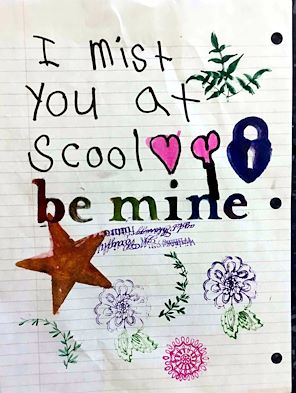 I mist
You at
Scool
be mine